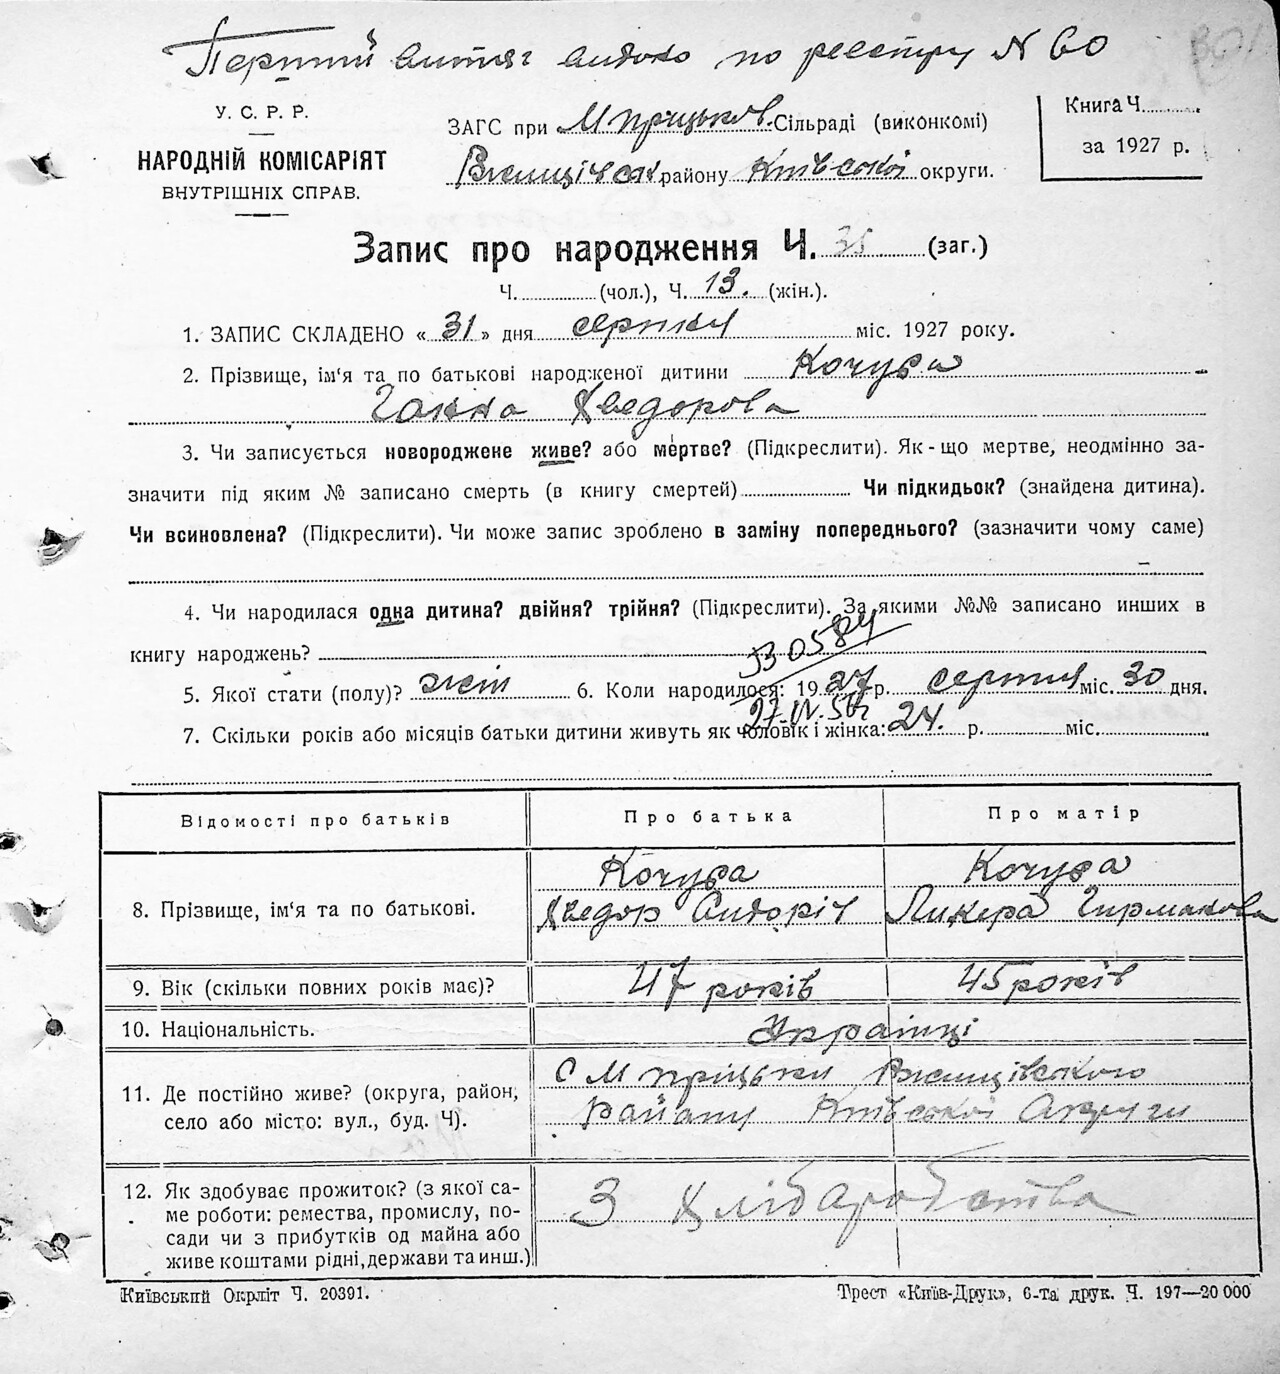 Перший витяг видано по реестру N 60
У. С. Р. Р.
НАРОДНІЙ КОМІСАРІЯТ
ВНУТРІШНІХ СПРАВ.
ЗАГС при М Прицьков. Сільраді (виконкомі)
району Київської округи.
Книга Ч.
за 1927 р.
Запис про народження Ч. 35 (заг.)
Ч. (чол.), Ч. 13. (жін.).
1. ЗАПИС СКЛАДЕНО « 31 » дня серпня міс. 1927 року.
2. Прізвище, ім‘я та по батькові народженої дитини Кочура
Ганна Хведорова
3. Чи записується новороджене живе? або мертве? (Підкреслити). Як-що мертве, неодмінно за-
значити під яким № записано смерть (в книгу смертей) Чи підкидьок? (знайдена дитина).
Чи всиновлена? (Підкреслити). Чи може запис зроблено в заміну попереднього? (зазначити чому саме)
4. Чи народилася одна дитина? двійня? трійня? (Підкреслити). За якими №№ записано инших в
книгу народжень?
530584
5. Якої стати (полу)? жін 6. Коли народилося: 1927 р. серпня міс. 30 дня.
27.IV.56г
7. Скільки років або місяців батьки дитини живуть як чоловік і жінка: 24. р. міс.
Відомості про батьків Про батька Про матір
8. Прізвище, ім‘я та по батькові.
Кочура
Хведор Сидоріч
Кочура
Ликера Гирманова
9. Вік (скільки повних років має)? 47 років 45 років
10. Національність. Українці
11. Де постійно живе? (округа, район,
село або місто: вул., буд. Ч).
с М Пріцьки
району Київської Округи
12. Як здобуває прожиток? (з якої са-
ме роботи: ремества, промислу, по-
сади чи з прибутків од майна або
живе коштами рідні, держави та инш.)
З хліборобства
Київський Окрліт Ч. 20391.
Трест «Київ-Друк», 6-та друк. Ч. 197—20 000